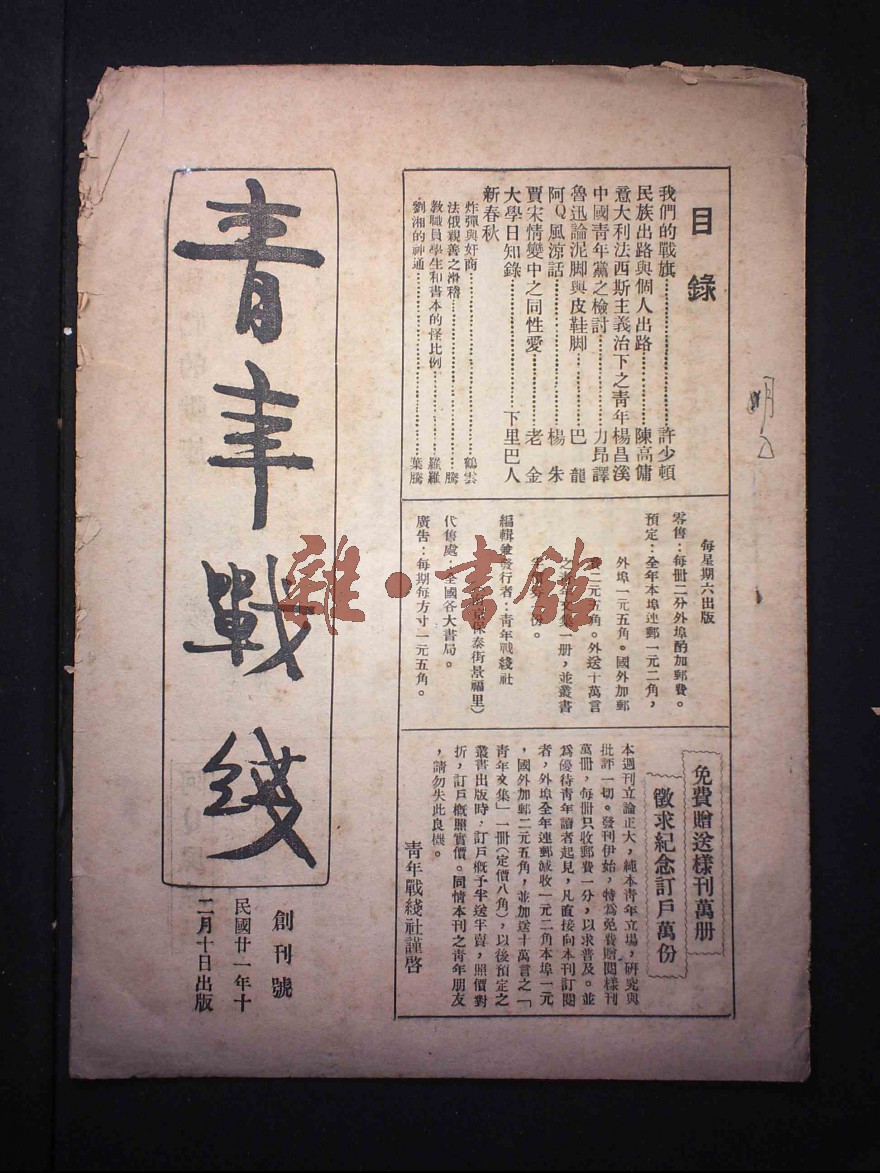 青年戰綫
創刊號
民國廿一年十
二月十日出版
目錄
我們的戰旗……許少頓
民族出路與個人出路……陳高傭
意大利法西斯主義治下之青年 楊昌溪
中國青年黨之檢討……力昂譯
魯迅論泥脚與皮鞋脚……巴龍
阿Q風涼話……楊朱
賈宋情變中之同性愛……老金
大學日知錄……下里巴人
新春秋
炸彈與奸商……鶴雲
法俄親善之滑稽……騰
教職員學生和書本的怪比例……羅羅
劉湘的神通……葉騰
每星期六出版
零售:每冊二分外埠酌加郵費。
預定:全年本埠連郵一元二角,
外埠一元五角。國外加郵
二元五角。外送十萬言
之青年文集一册,並叢書
編輯兼發行者:青年戰綫社
保泰街景福里)
代售處:全國各大書局。
廣告:每期每方寸一元五角。
免費贈送樣刊萬册
徵求紀念訂戶萬份
本週刊立論正大,純本青年立場,研究與
批評一切。發刊伊始,特為免費贈閱樣刊
萬冊,每冊只收郵費一分,以求普及。並
為優待青年讀者起見,凡直接向本刊訂閱
者,外埠全年連郵減收一元二角本埠一元
,國外加郵二元五角,並加送十萬言之「
青年文集」一冊(定價八角),以後預定之
叢書出版時,訂戶概予半送半賣,照價對
折,訂戶概照實價。同情本刊之青年朋友
,請勿失此良機。
青年戰綫社謹啓
雜·書館